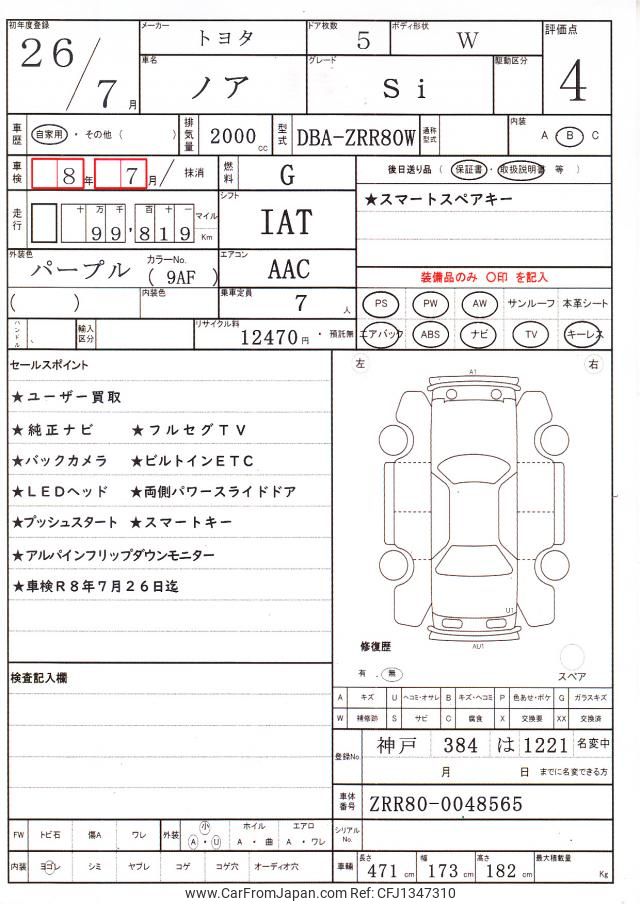 初年度登録 メーカー ドア枚数 ボディ形状 評価点
26/7月 トヨタ 5 W 4
車名 グレード 駆動区分
ノア Si
車歴 自家用・その他( ) 排気量 2000cc 型式 DBA-ZRR80W 通称型式 内装 A・B C
車検 8年 7月/ 抹消 燃料 G 後日送り品 ( 保証書・取扱説明書 等 )
走行 十万千百十一 マイル Km シフト ★スマートスペアキー
99,819 IAT
外装色 カラーNo. エアコン
パープル ( 9AF ) AAC 装備品のみ 〇印 を記入
( ) 内装色 乗車定員 7人 PS PW AW サンルーフ 本革シート
ハンドル 輸入区分 リサイクル料 12470円・預託無 エアバック ABS ナビ TV キーレス
セールスポイント 左 右
★ユーザー買取 A1
★純正ナビ ★フルセグTV
★バックカメラ ★ビルトインETC
★LEDヘッド ★両側パワースライドドア
★プッシュスタート ★スマートキー
★アルパインフリップダウンモニター
★車検R8年7月26日迄
U1
AU1
修復歴
有・無 スペア
検査記入欄
A キズ U ヘコミ・オサレ B キズ・ヘコミ P 色あせ・ボケ G ガラスキズ
W 補修跡 S サビ C 腐食 X 交換要 XX 交換済
登録No. 神戸 384 は 1221 名変中
月 日 までに名変できる方
車体番号 ZRR80-0048565
FW トビ石 傷A ワレ 外装 小 A・U ホイル A・曲 エアロ A・ワレ シリアルNo.
内装 ヨゴレ シミ ヤブレ コゲ コゲ穴 オーディオ穴 車輌 長さ 471cm 幅 173cm 高さ 182cm 最大積載量 Kg
www.CarFromJapan.com Ref: CFJ1347310